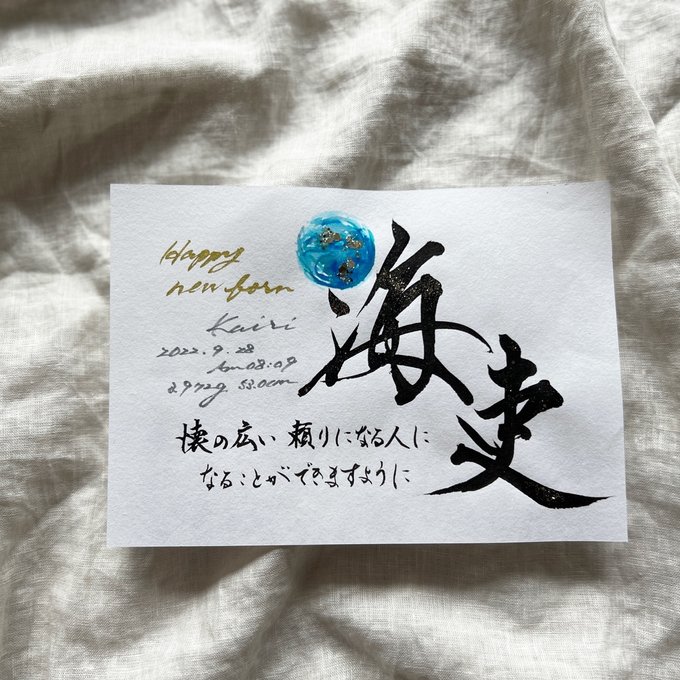 Happy
new born
Kairi
2022.9.28
Am08:09
2972g 53.0cm
海吏
懐の広い 頼りになる人に
なることができますように